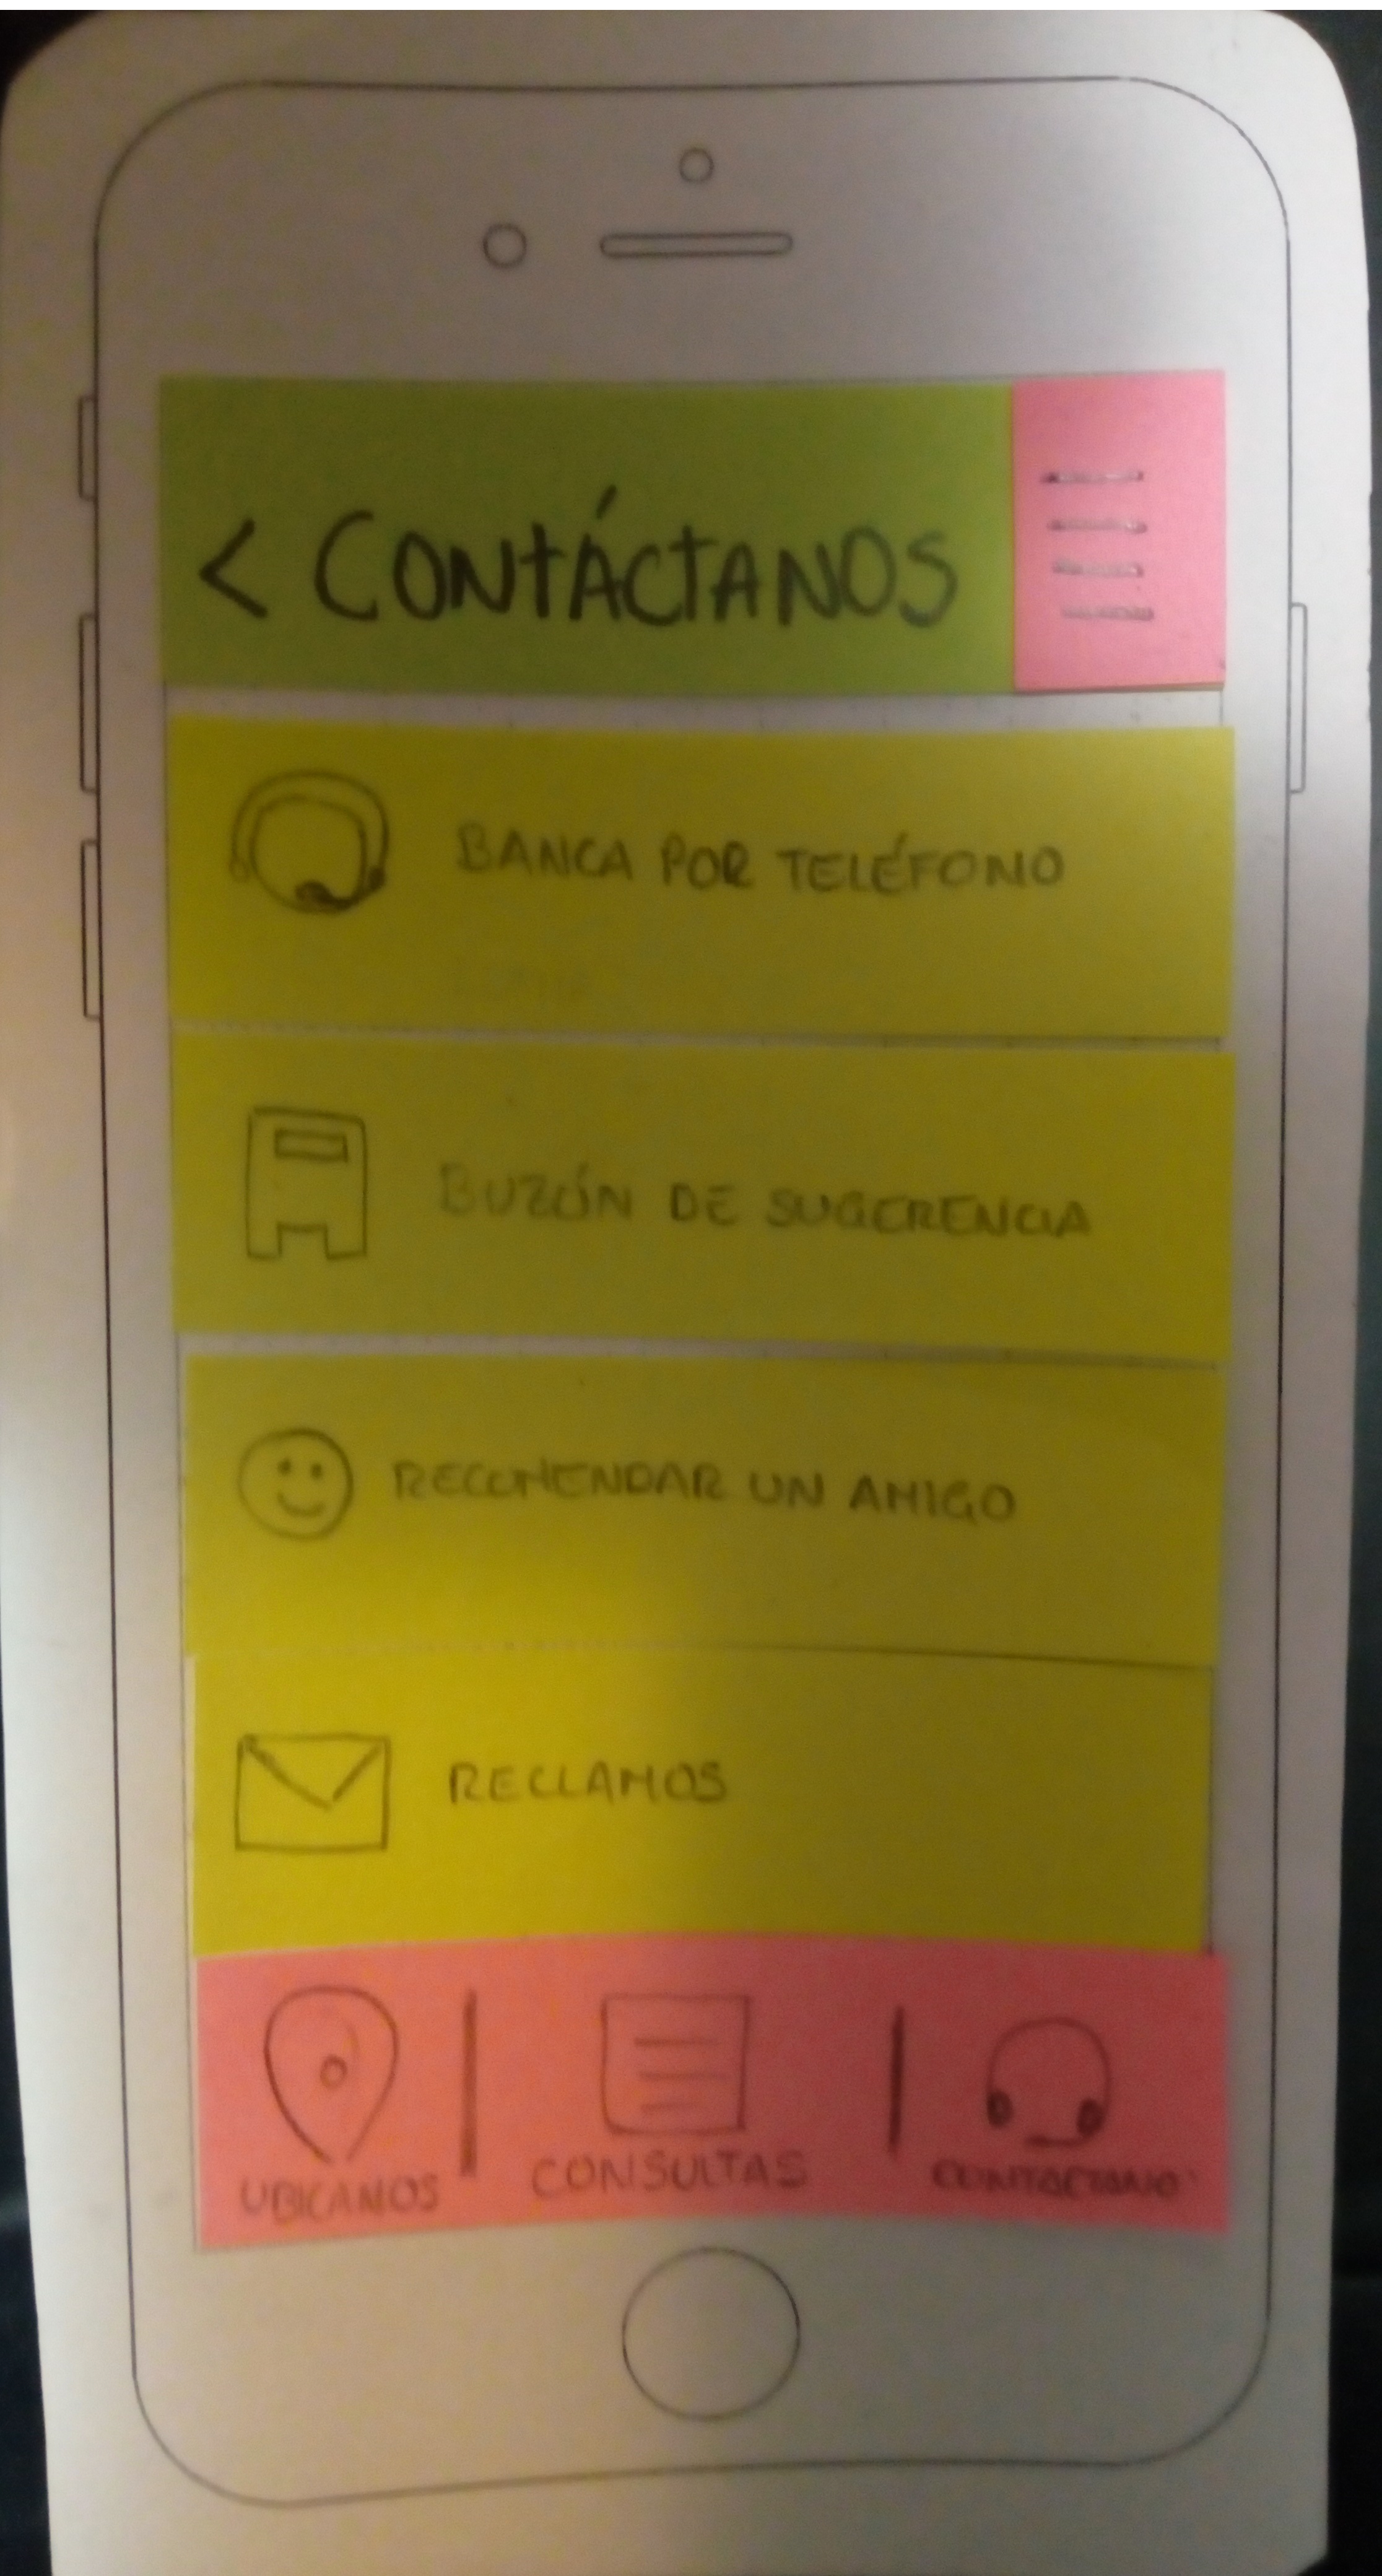 < CONTÁCTANOS
BANCA POR TELÉFONO
BUZÓN DE SUGERENCIA
RECOMENDAR UN AMIGO
RECLAMOS
UBICANOS
CONSULTAS